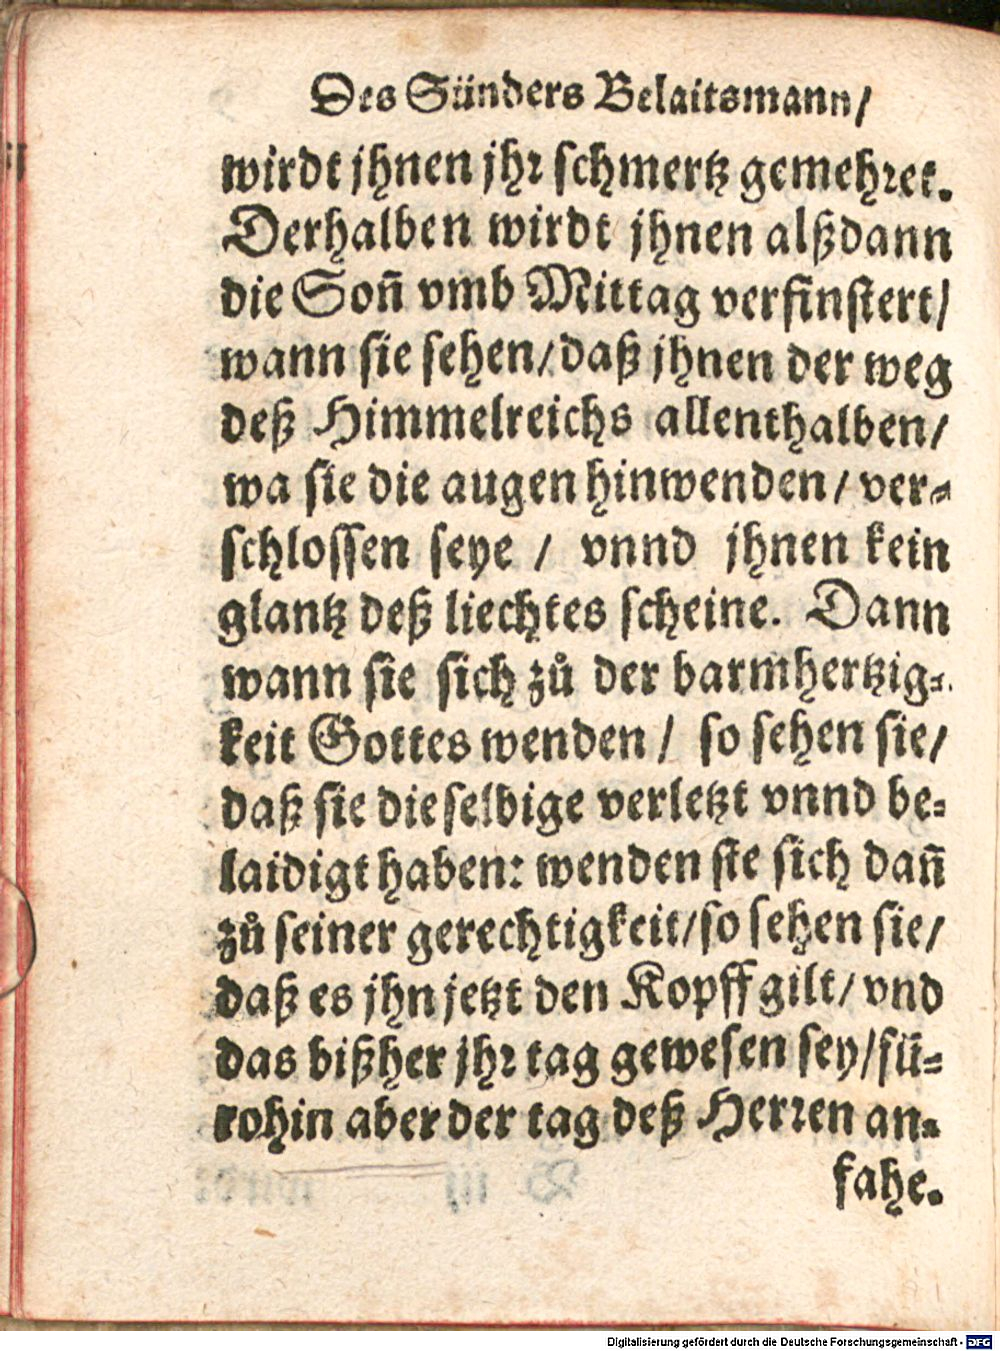 Des Sünders Belaitsmann/
wirdt jhnen jhꝛ schmertz gemehꝛet.
Derhalben wirdt jhnen alßdann
die Son̄ vmb Mittag verfinstert/
wann sie sehen/ daß jhnen der weg
deß Himmelreichs allenthalben/
wa sie die augen hinwenden/ ver⸗
schlossen seye / vnnd jhnen kein
glantz deß liechtes scheine. Dann
wann sie sich zů der barmhertzig⸗
keit Gottes wenden/ so sehen sie/
daß sie dieselbige verletzt vnnd be⸗
laidigt haben: wenden sie sich dan̄
zů seiner gerechtigkeit/ so sehen sie/
daß es jhn jetzt den Kopff gilt/ vnd
das bißher jhꝛ tag gewesen sey/ fü⸗
rohin aber der tag deß Herꝛen an⸗
fahe.
Digitalisierung gefördert durch die Deutsche Forschungsgemeinschaft - DFG